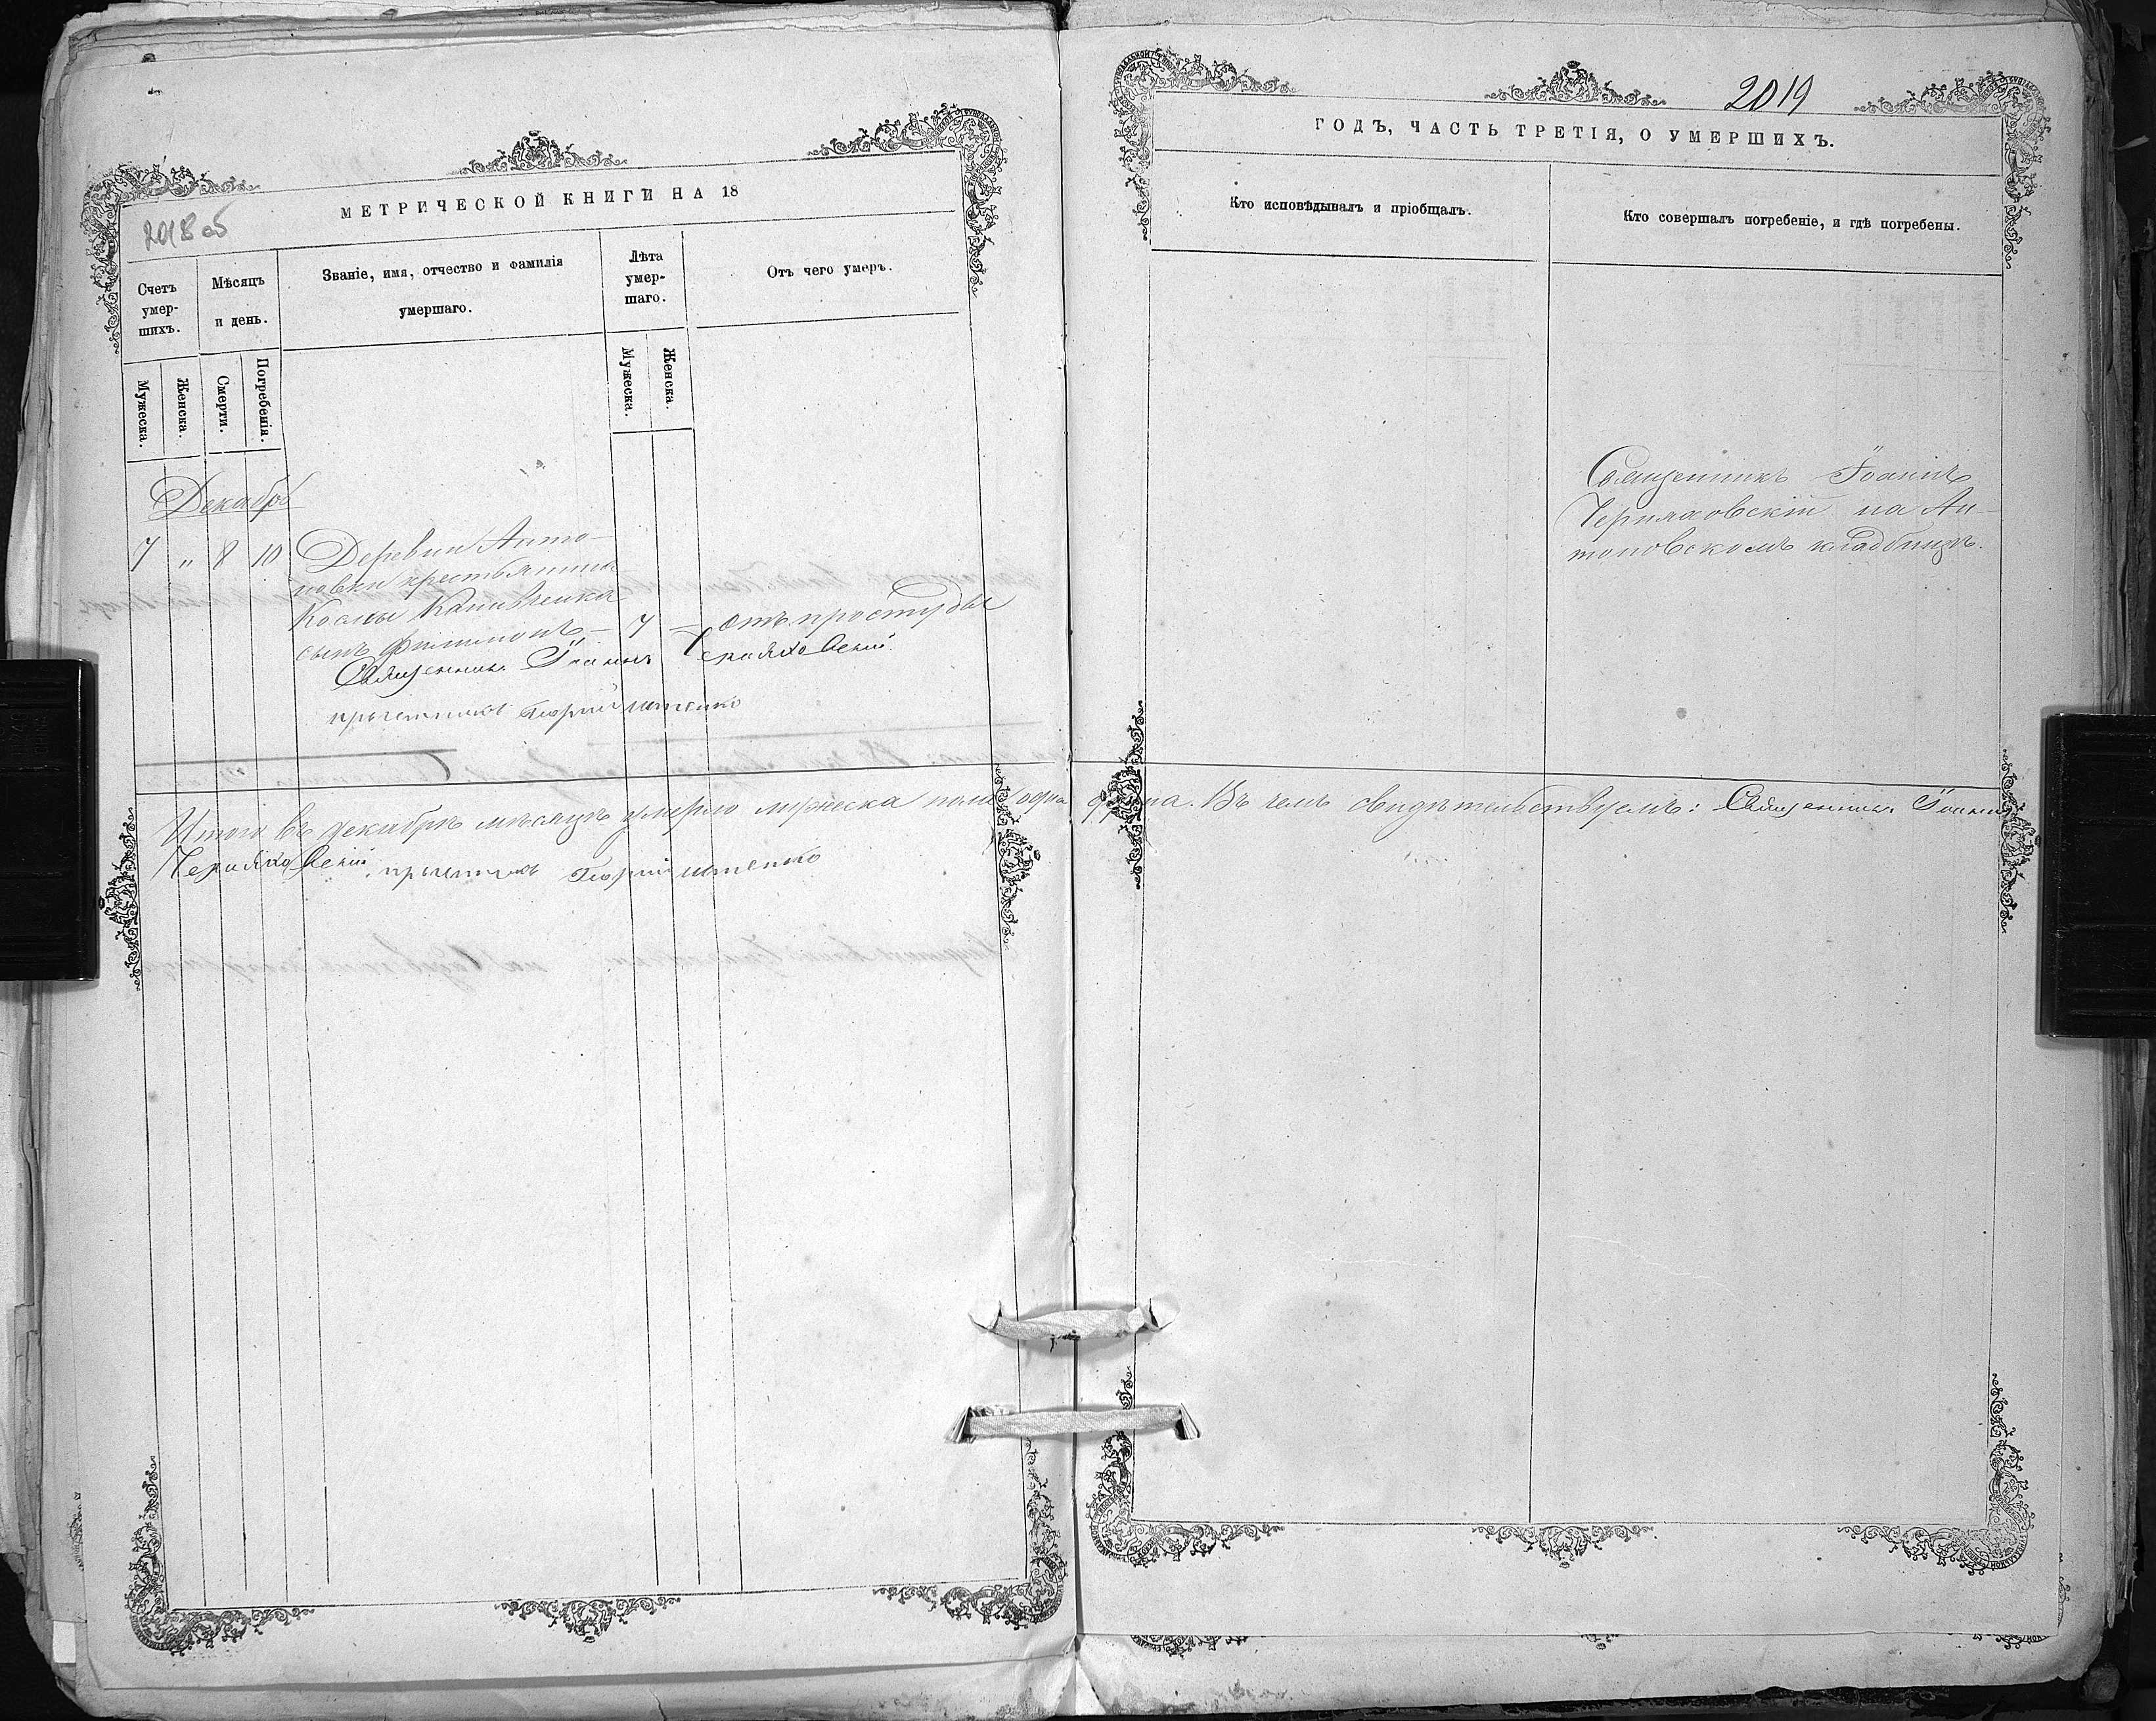 2018 об
МЕТРИЧЕСКОЙ КНИГИ НА 18
Счетъ умер-шихъ.
Мѣсяцъ и день.
Званіе, имя, отчество и фамилія умершаго.
Лѣта умер-шаго.
Отъ чего умеръ.
Мужеска.
Женска.
Смерти.
Погребенія.
Мужеска.
Женска.
Декабрь
7 „ 8 10 Деревни Анто-
новки крестьянина
Космы
сынъ Филимонъ — 7 — отъ простуды
Священникъ Іоаннъ Черняховскій
причетникъ Георгій
Итого въ декабрѣ мѣсяцѣ умерло мужеска пола одна душа. Въ чемъ свидѣтельствуемъ: Священникъ Іоаннъ
Черняховскій, причетникъ Георгій
2019
ГОДЪ, ЧАСТЬ ТРЕТІЯ, О УМЕРШИХЪ.
Кто исповѣдывалъ и пріобщалъ.
Кто совершалъ погребеніе, и гдѣ погребены.
Священникъ Іоаннъ
Черняховскій на Ан-
тоновскомъ кладбищѣ.